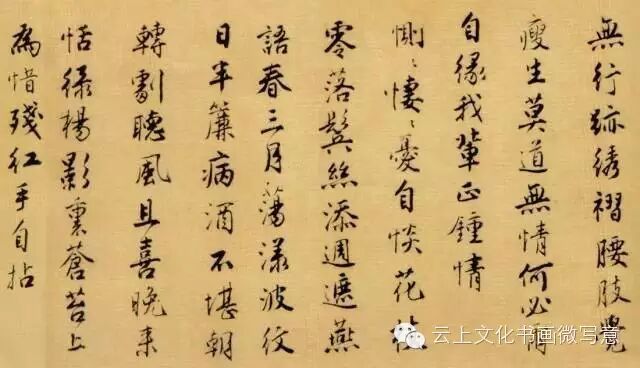 無行跡綉褶腰肢覺
瘦生莫道無情何必爾
自緣我輩正鍾情
惻〻悽〻憂自惔花枝
零落鬓絲添週遮燕
語春三月蕩漾波紋
日半簾病酒不堪朝
轉劇聽風且喜晚来
恬緑楊影裏蒼苔上
為惜殘紅手自拈
云上文化书画微写意